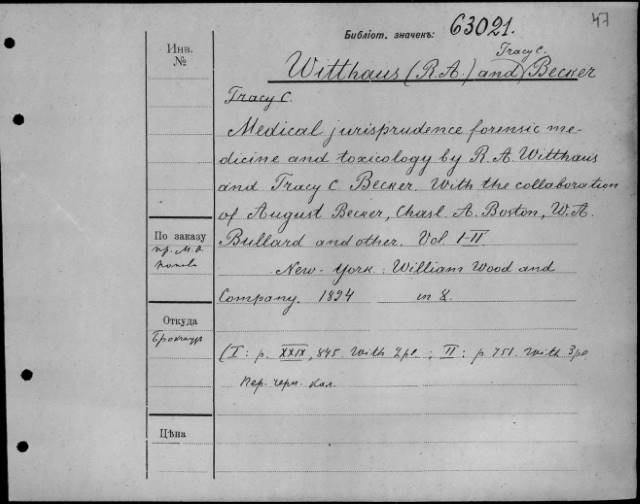 Библіот. значекъ: 63021.
47
Инв.
№
Tracy C.
Witthaus (R.A.) and Becker
Tracy C.
Medical jurisprudence forensic me-
dicine and toxicology by R. A. Witthaus
and Tracy C Becker. With the collaboration
of August Becker, Chasl. A. Boston, W. A.
Bullard and other. Vol I-II
По заказу
пр. М. Ф.
Попова
New-York: William Wood and
Company. 1894 in 8.
Откуда
Брокгауз
(I: p. XXIX, 845 with 2 pl. ; II: p. 751. with 3 pl
пер. черн. кол.
Цѣна